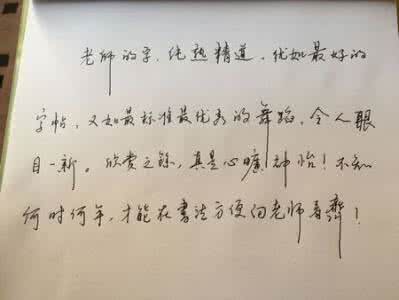 老师的字，纯熟精道，优如最好的
字帖，又如最标准最优秀的舞蹈，令人眼
目一新。欣赏之余，真是心旷神怡！不知
何时何年，才能在書法方便向老师看齊！